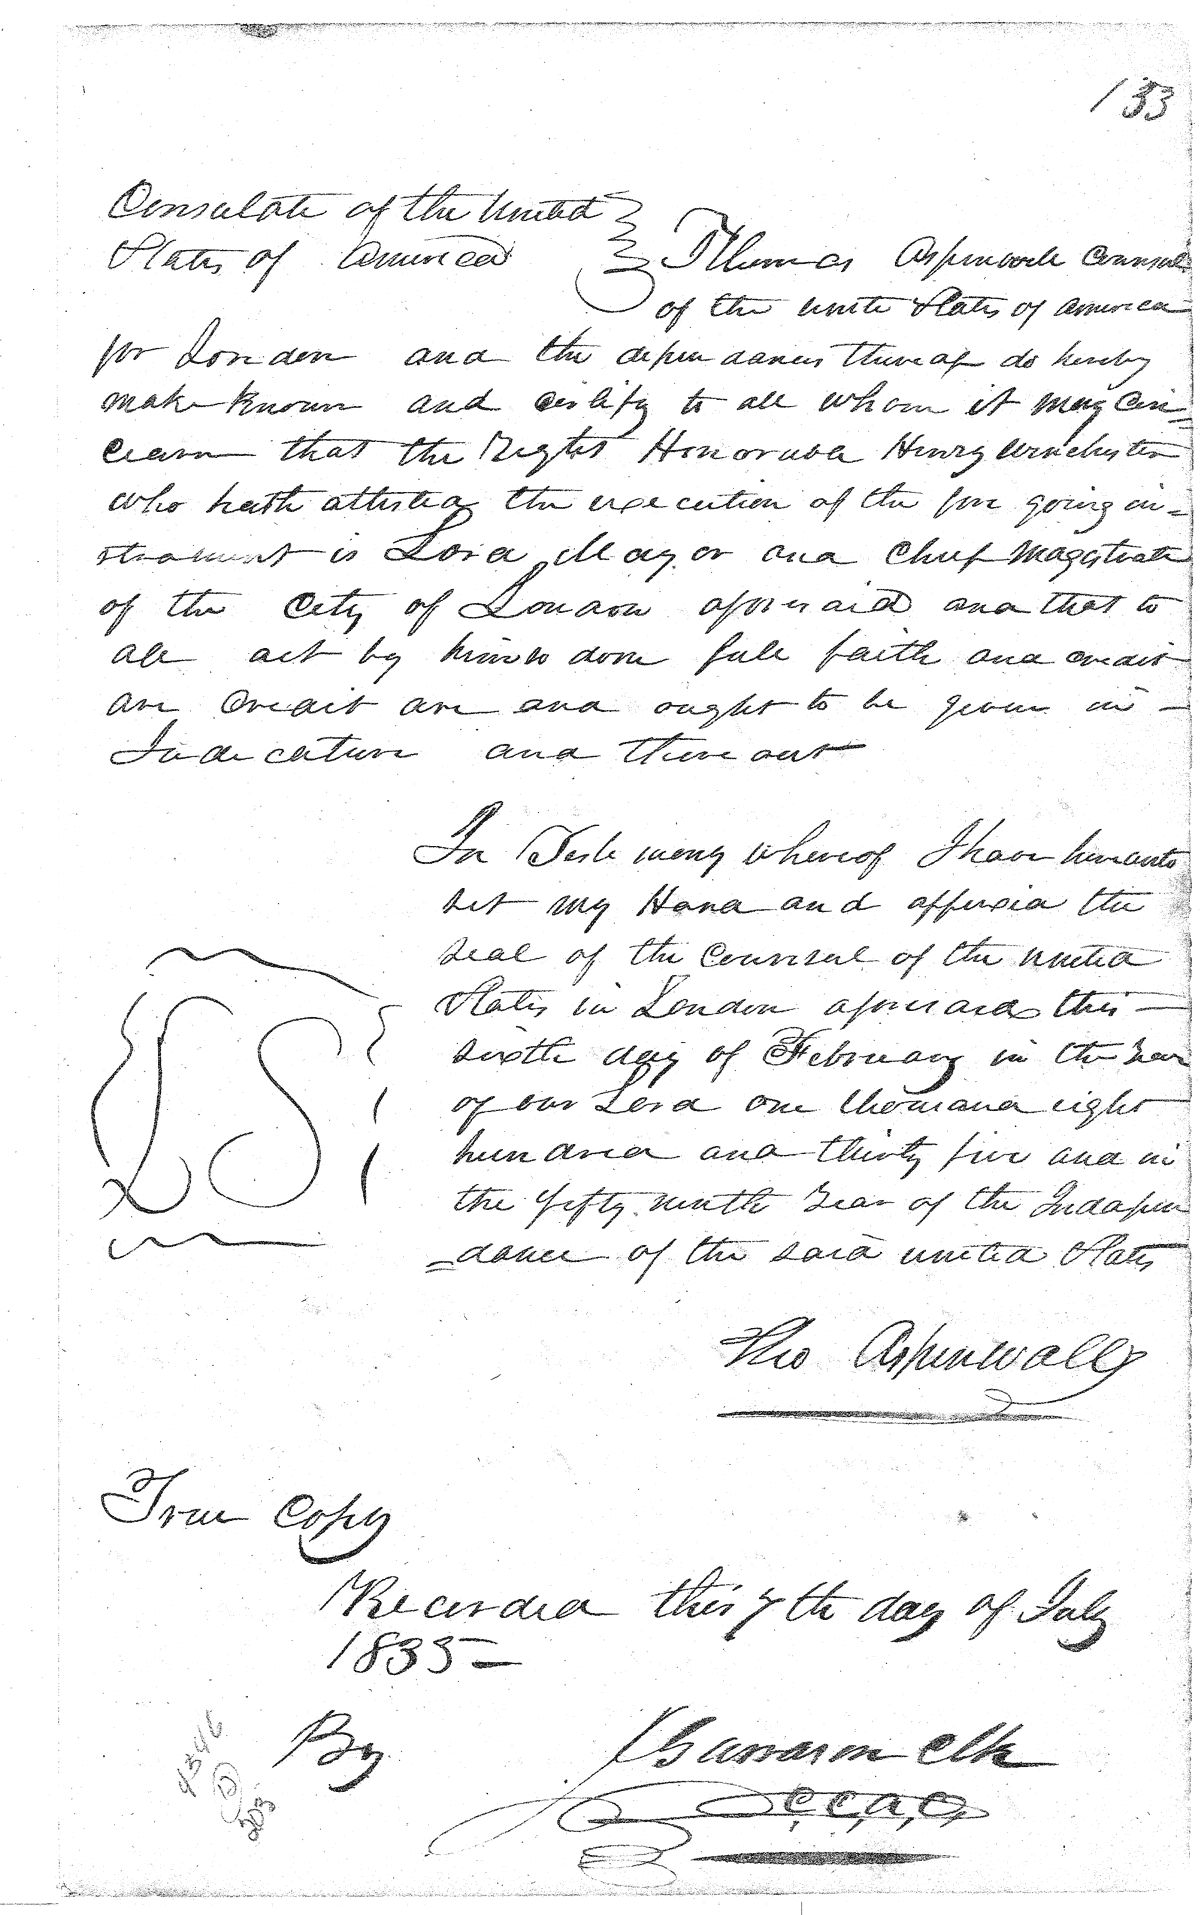 133
Consulate of the United
States of America
Thomas Aspinwall Consul
of the Unite States of America
for London and the dependances thereof do hereby
make known and certify to all whom it may con=
cearn that the Right Honorable Henry Winchester
who hath attested the execution of the fore going in=
strument is Lord Mayor and Chief Magistrate
of the City of London aforesaid and that to
all act by him so done full faith and credit
are credit are and ought to be given in
Judicature and thereout
In Testimony whereof I have hereunto
set my Hand and affixed the
seal of the Counsul of the United
States in London aforesaid this
sixth day of February in the year
of our Lord one thousand eight
hundred and thirty five and in
the fifty ninth year of the Indapen
=dance of the said united States
LS
Tho Aspinwall
True Copy
Recorded this 7th day of July
1835
By
Clk
C.C.A.C.